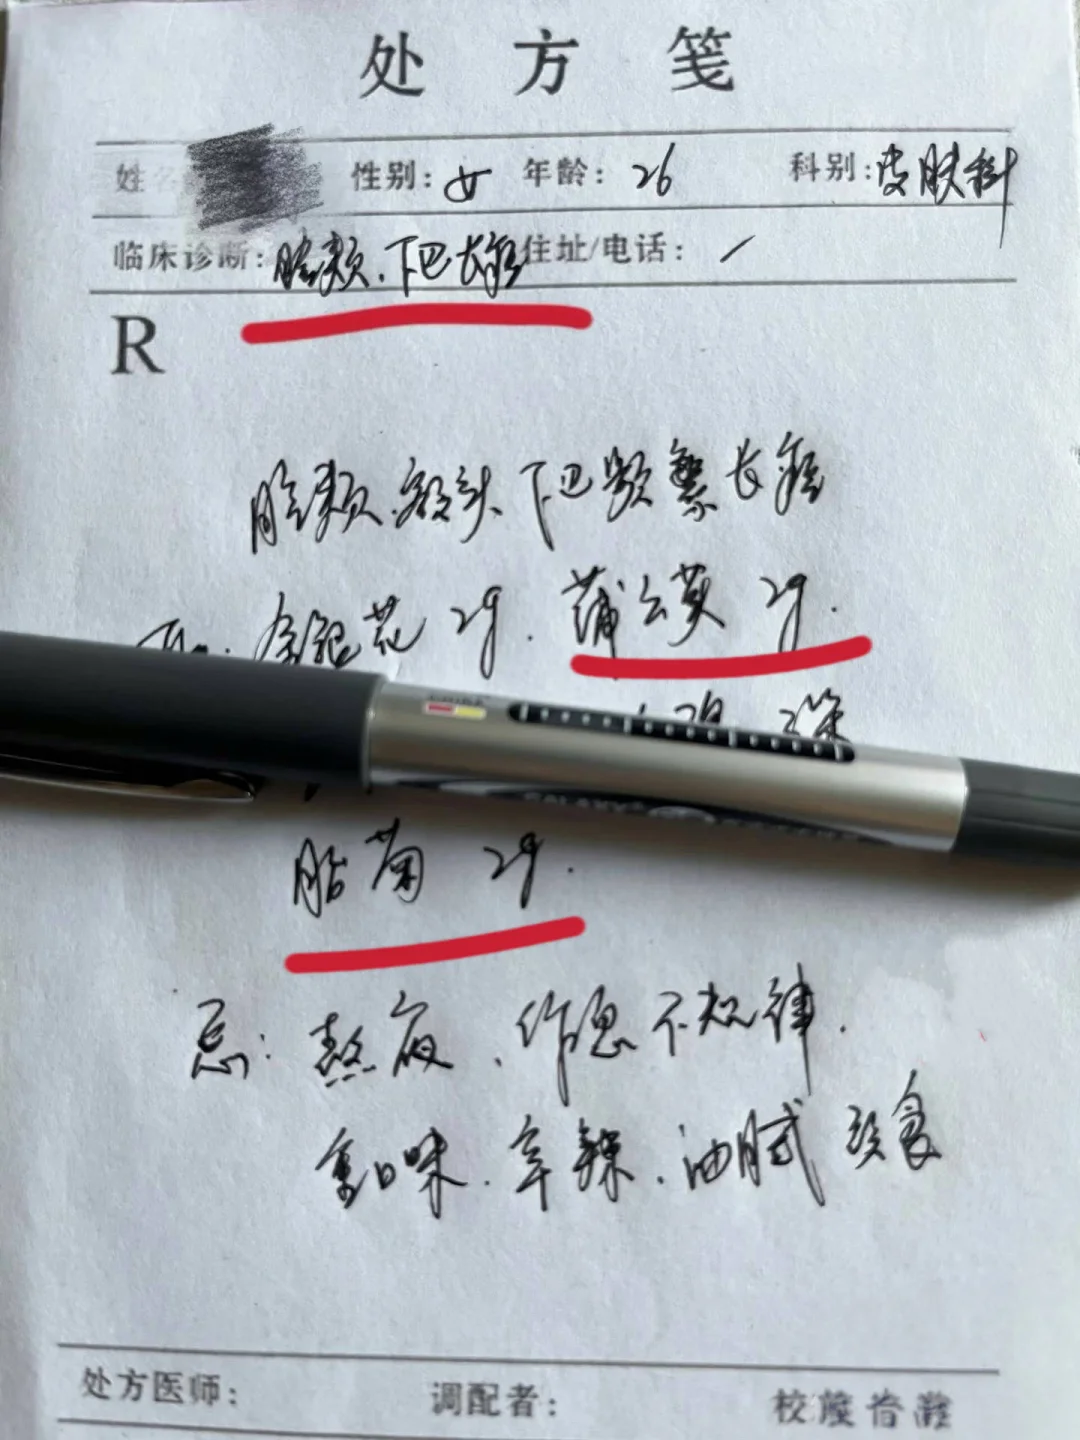 处方笺
姓名 性别: 女 年龄: 26 科别: 皮肤科
临床诊断: 脸颊、下巴长痘 住址/电话:
R
脸颊、额头、下巴频繁长痘
金银花 2g. 蒲公英 2g.
胎菊 2g.
忌: 熬夜、作息不规律.
重口味、辛辣、油腻饮食
处方医师: 调配者: 校